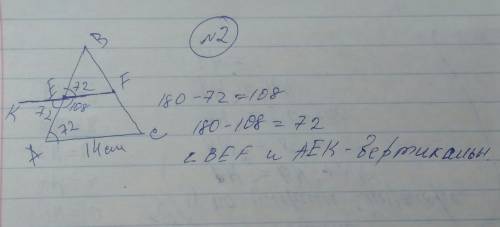 №2
B
E 72 F
K 72 108
180-72=108
72
180-108=72
A 14 см C
∠BEF и AEK-вертикальн